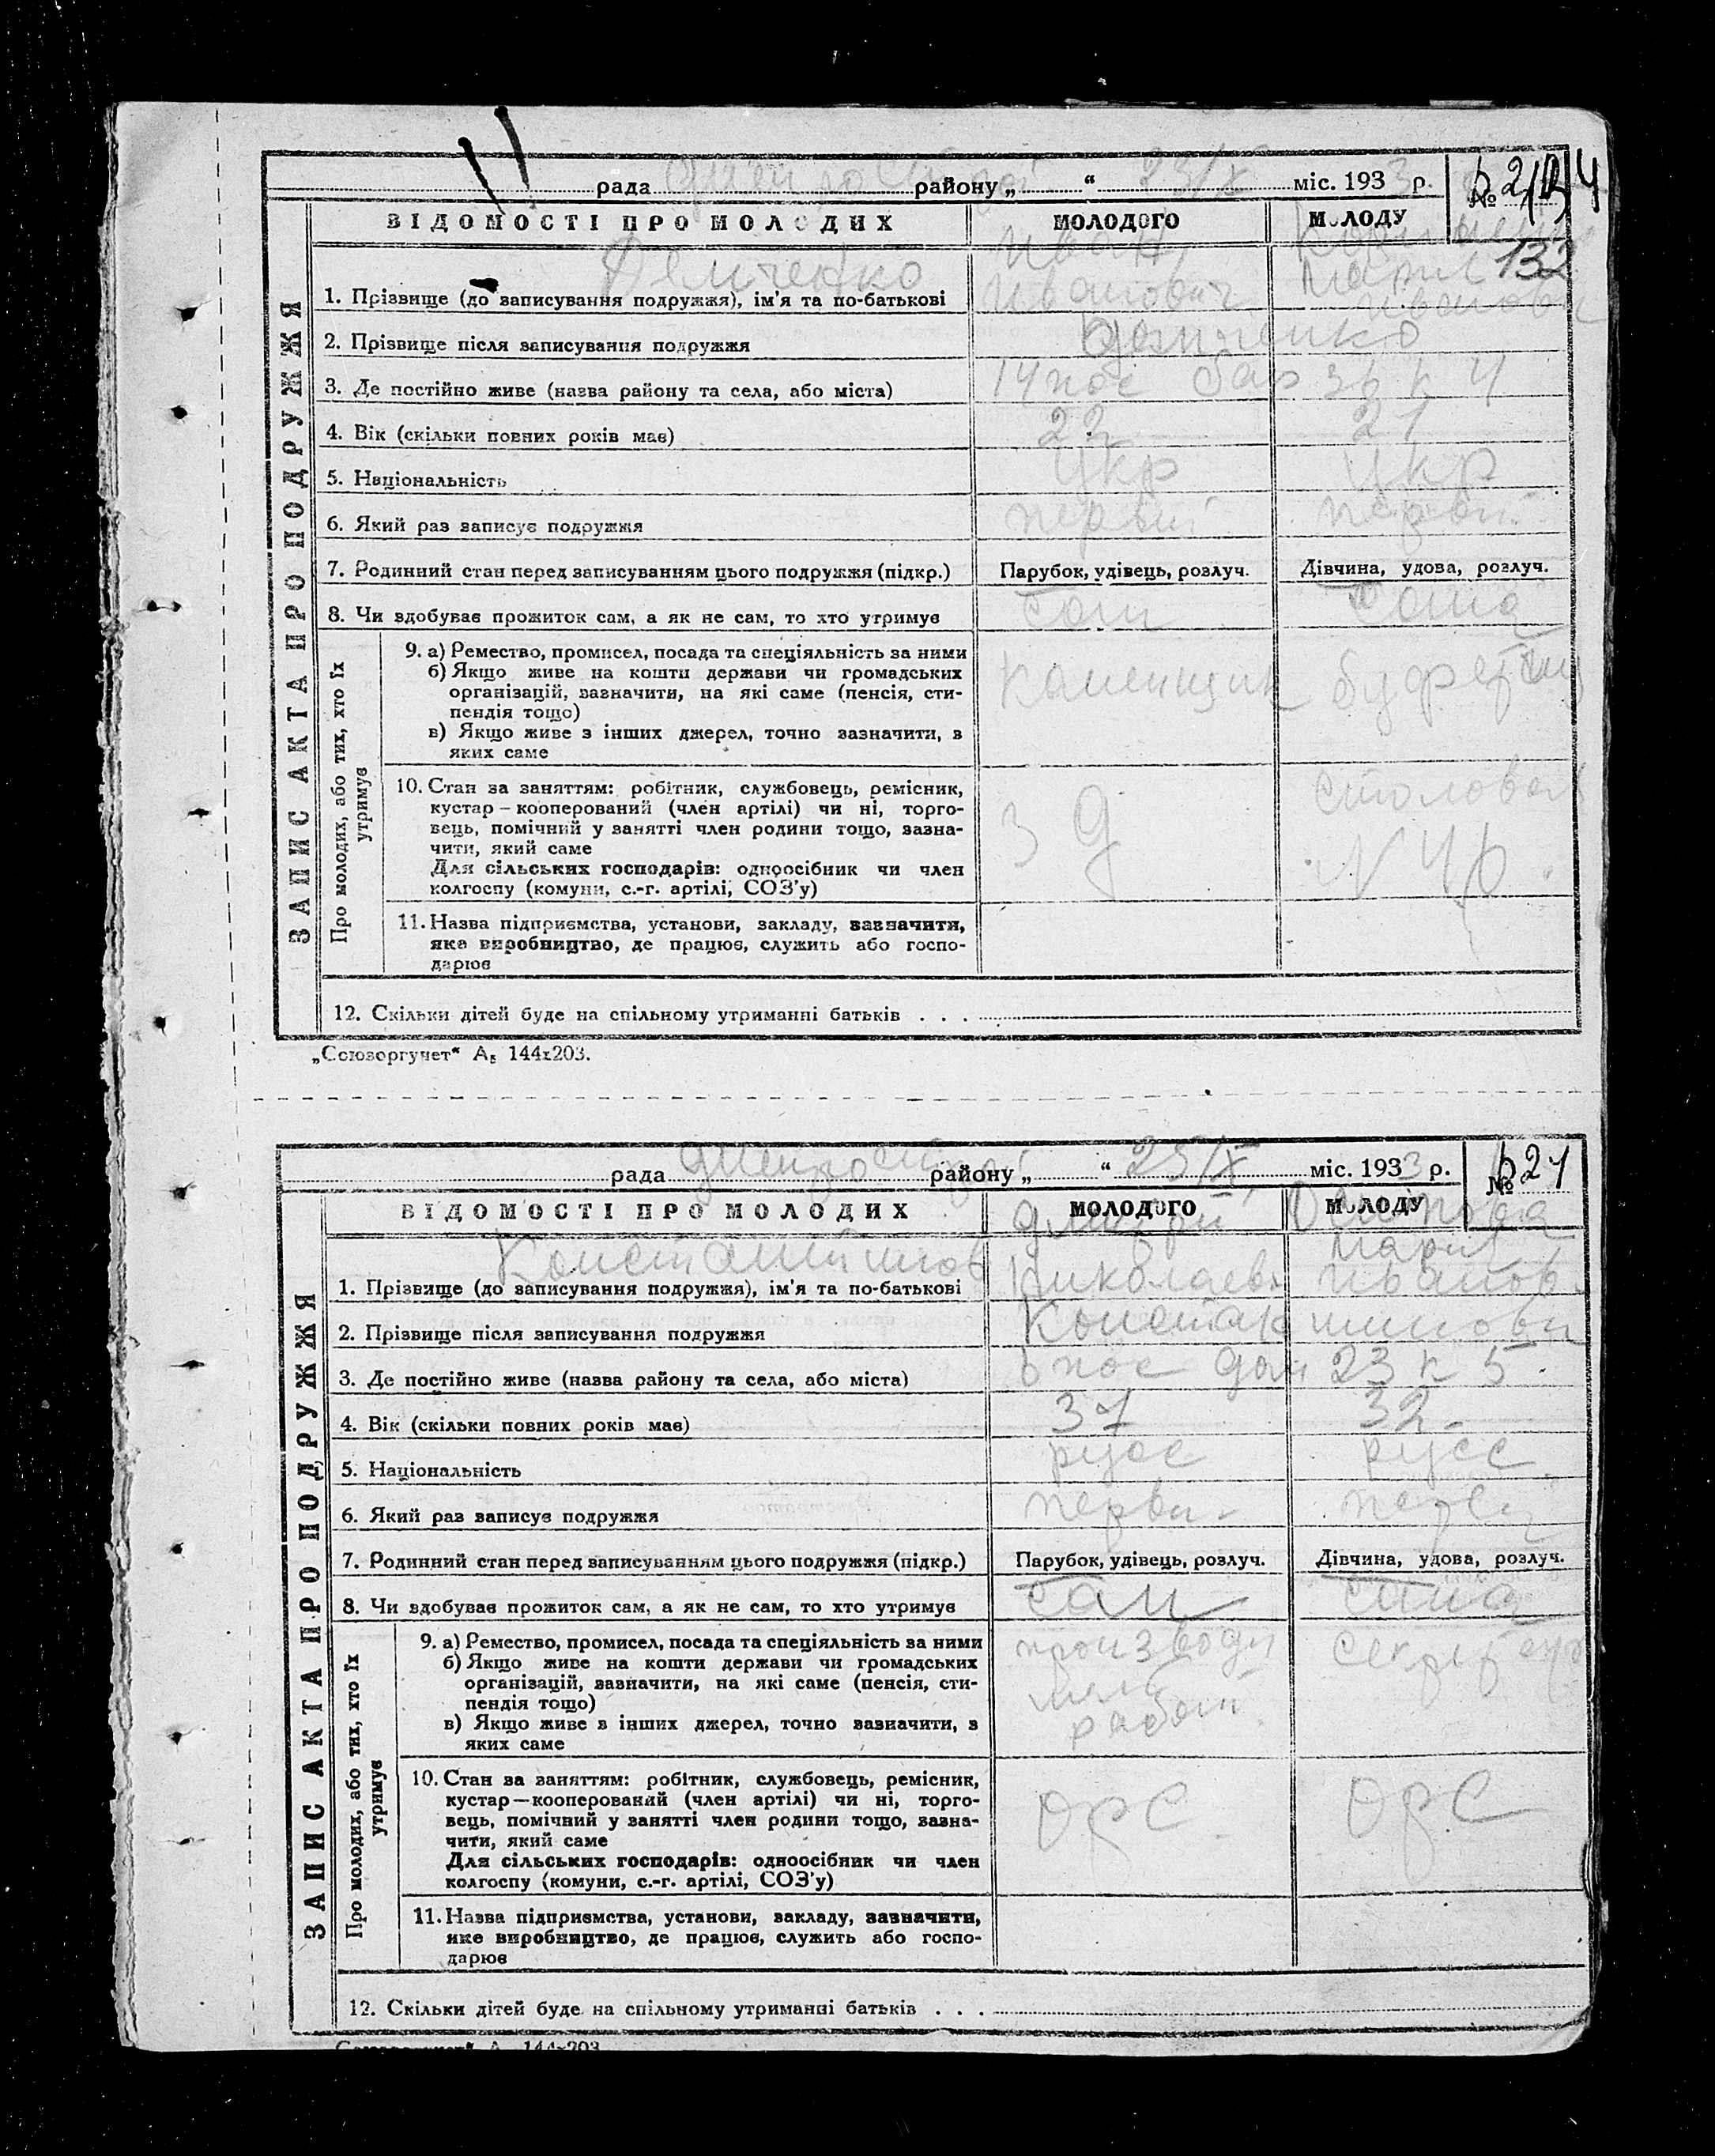 рада Днепрострой району „ “ 23/X міс. 1933 р. №
ВІДОМОСТІ ПРО МОЛОДИХ МОЛОДОГО МОЛОДУ
132
Демченко Иван Мария
1. Прізвище (до записування подружжя), ім'я та по-батькові Иванович Иванов
2. Прізвище після записування подружжя Демченко
3. Де постійно живе (назва району та села, або міста) 14 пос бар 36 к 4
4. Вік (скільки повних років має) 22 21
5. Національність укр укр
6. Який раз записує подружжя первый первый
7. Родинний стан перед записуванням цього подружжя (підкр.) Парубок, удівець, розлуч. Дівчина, удова, розлуч.
8. Чи здобуває прожиток сам, а як не сам, то хто утримує сам сама
ЗАПИС АКТА ПРО ПОДРУЖЖЯ
Про молодих, або тих, хто їх
утримує
9. а) Ремество, промисел, посада та спеціяльність за ними
б) Якщо живе на кошти держави чи громадських каменщик
організацій, зазначити, на які саме (пенсія, сти-
пендія тощо)
в) Якщо живе з інших джерел, точно зазначити, з
яких саме
10. Стан за заняттям: робітник, службовець, ремісник, столовая
кустар – кооперований (член артілі) чи ні, торго-
вець, помічний у занятті член родини тощо, зазна-
чити, який саме
Для сільських господарів: одноосібник чи член
колгоспу (комуни, с.-г. артілі, СОЗ'у)
11. Назва підприємства, установи, закладу, зазначити,
яке виробництво, де працює, служить або госпо-
дарює
12. Скільки дітей буде на спільному утриманні батьків . . .
„Союзоргучет“ А5 144х203.
рада Днепрострой району „ “ 25/X міс. 1933 р. №
ВІДОМОСТІ ПРО МОЛОДИХ МОЛОДОГО МОЛОДУ
Константинов Дмитрий Мария
1. Прізвище (до записування подружжя), ім'я та по-батькові Николаев Иванов
2. Прізвище після записування подружжя Константиновы
3. Де постійно живе (назва району та села, або міста) 6 пос дом 23 к 5
4. Вік (скільки повних років має) 37 32
5. Національність русс русс
6. Який раз записує подружжя перви
7. Родинний стан перед записуванням цього подружжя (підкр.) Парубок, удівець, розлуч. Дівчина, удова, розлуч.
8. Чи здобуває прожиток сам, а як не сам, то хто утримує сам сама
ЗАПИС АКТА ПРО ПОДРУЖЖЯ
Про молодих, або тих, хто їх
утримує
9. а) Ремество, промисел, посада та спеціяльність за ними производи секретар
б) Якщо живе на кошти держави чи громадських
організацій, зазначити, на які саме (пенсія, сти- тель
пендія тощо) работ
в) Якщо живе з інших джерел, точно зазначити, з
яких саме
10. Стан за заняттям: робітник, службовець, ремісник, орс орс
кустар—кооперований (член артілі) чи ні, торго-
вець, помічний у занятті член родини тощо, зазна-
чити, який саме
Для сільських господарів: одноосібник чи член
колгоспу (комуни, с.-г. артілі, СОЗ'у)
11. Назва підприємства, установи, закладу, зазначити,
яке виробництво, де працює, служить або госпо-
дарює
12. Скільки дітей буде на спільному утриманні батьків . . .